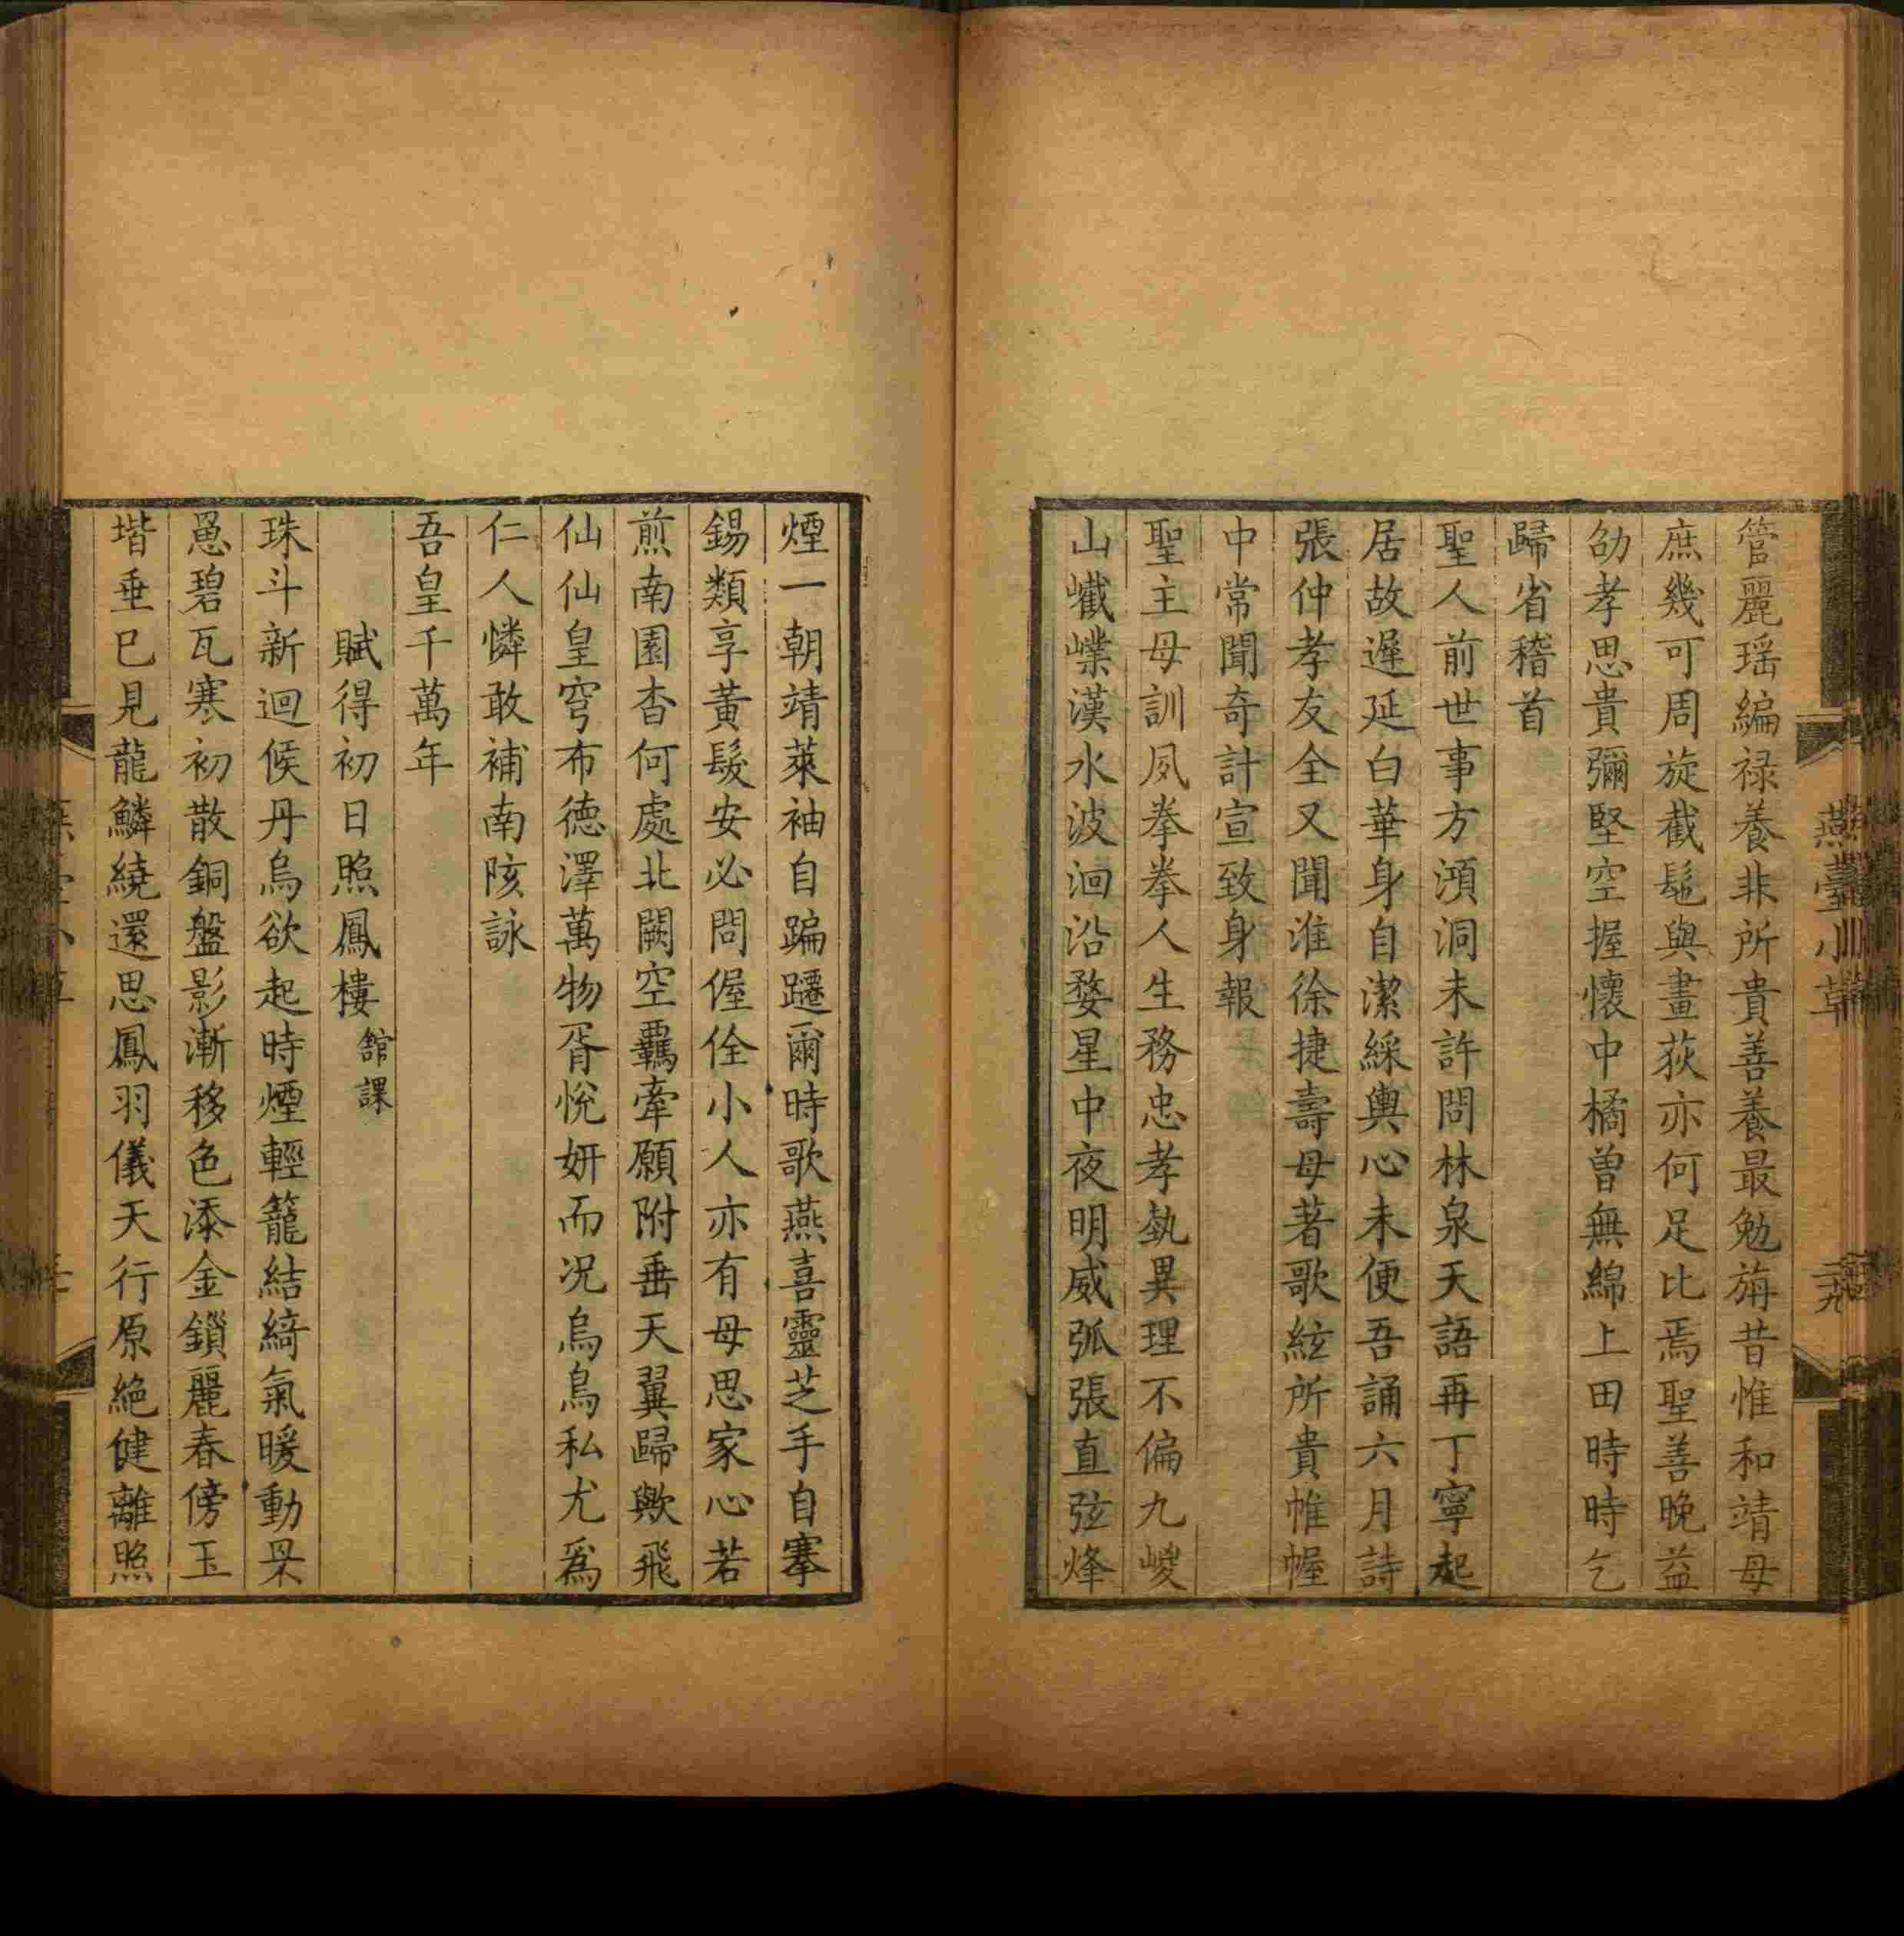 管麗瑶編禄養非所貴善養最勉旃昔惟和靖母
庶幾可周旋截髢與畫荻亦何足比焉聖善晚益
劭孝思貴彌堅空握懷中橘曾無綿上田時時乞
歸省稽首
聖人前世事方澒洞未許問林泉天語再丁寧起
居故遲延白華身自潔綵輿心未便吾誦六月詩
張仲孝友全又聞淮徐捷壽母著歌絃所貴帷幄
中常聞奇計宣致身報
聖主母訓夙拳拳人生務忠孝埶異理不偏九嵕
山巀嶫漢水波洄沿婺星中夜明威弧張直弦烽
燕臺小草
煙一朝靖萊袖自蹁躚爾時歌燕喜靈芝手自搴
錫類享黃髮安必問偓佺小人亦有母思家心若
煎南園杳何處北闕空羈牽願附垂天翼歸歟飛
仙仙皇穹布德澤萬物胥悅妍而况烏烏私尤爲
仁人憐敢補南陔詠
吾皇千萬年
賦得初日照鳳樓 舘課
珠斗新迴候丹烏欲起時煙輕籠結綺氣暖動罘
罳碧瓦寒初散銅盤影漸移色添金鎖麗春傍玉
堦垂巳見龍鱗繞還思鳳羽儀天行原絶健離照